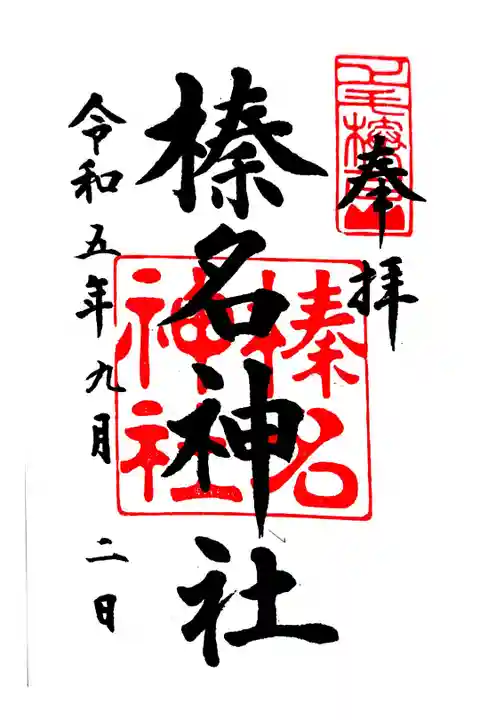 奉拝
榛名神社
榛名
神社
令和五年九月 二日